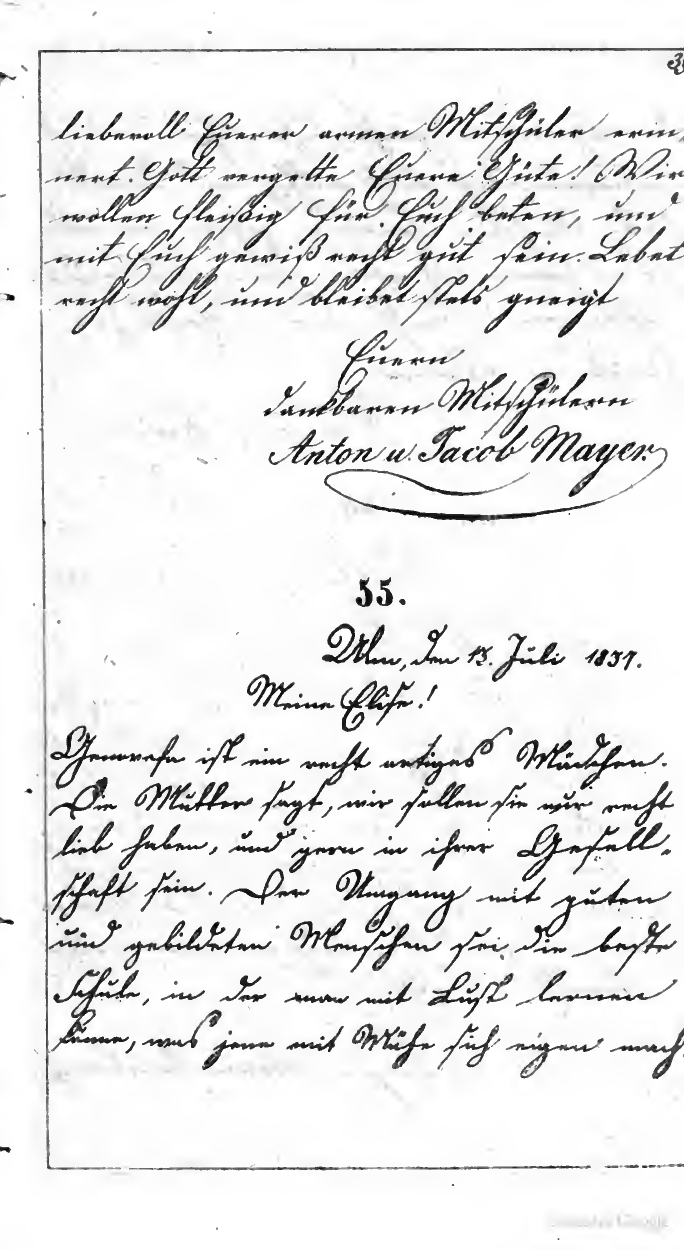 liebevoll Euerer armen Mitschüler erin-
nert. Gott vergelte Euere Güte! Wir
wollen fleißig für Euch beten, und
mit Euch gewiß recht gut sein. Lebet
recht wohl, und bleibet stets gneigt
Euern
dankbaren Mitschülern
Anton u. Jacob Mayer.
55.
Ulm, den 13. Juli 1837.
Meine Elise!
Genovefa ist ein recht artiges Mädchen.
Die Mutter sagt, wir sollen sie nur recht
lieb haben, und gern in ihrer Gesell-
schaft sein. Der Umgang mit guten
und gebildeten Menschen sei die beste
Schule, in der man mit Lust lernen
könne, was jene mit Mühe sich eigen mach